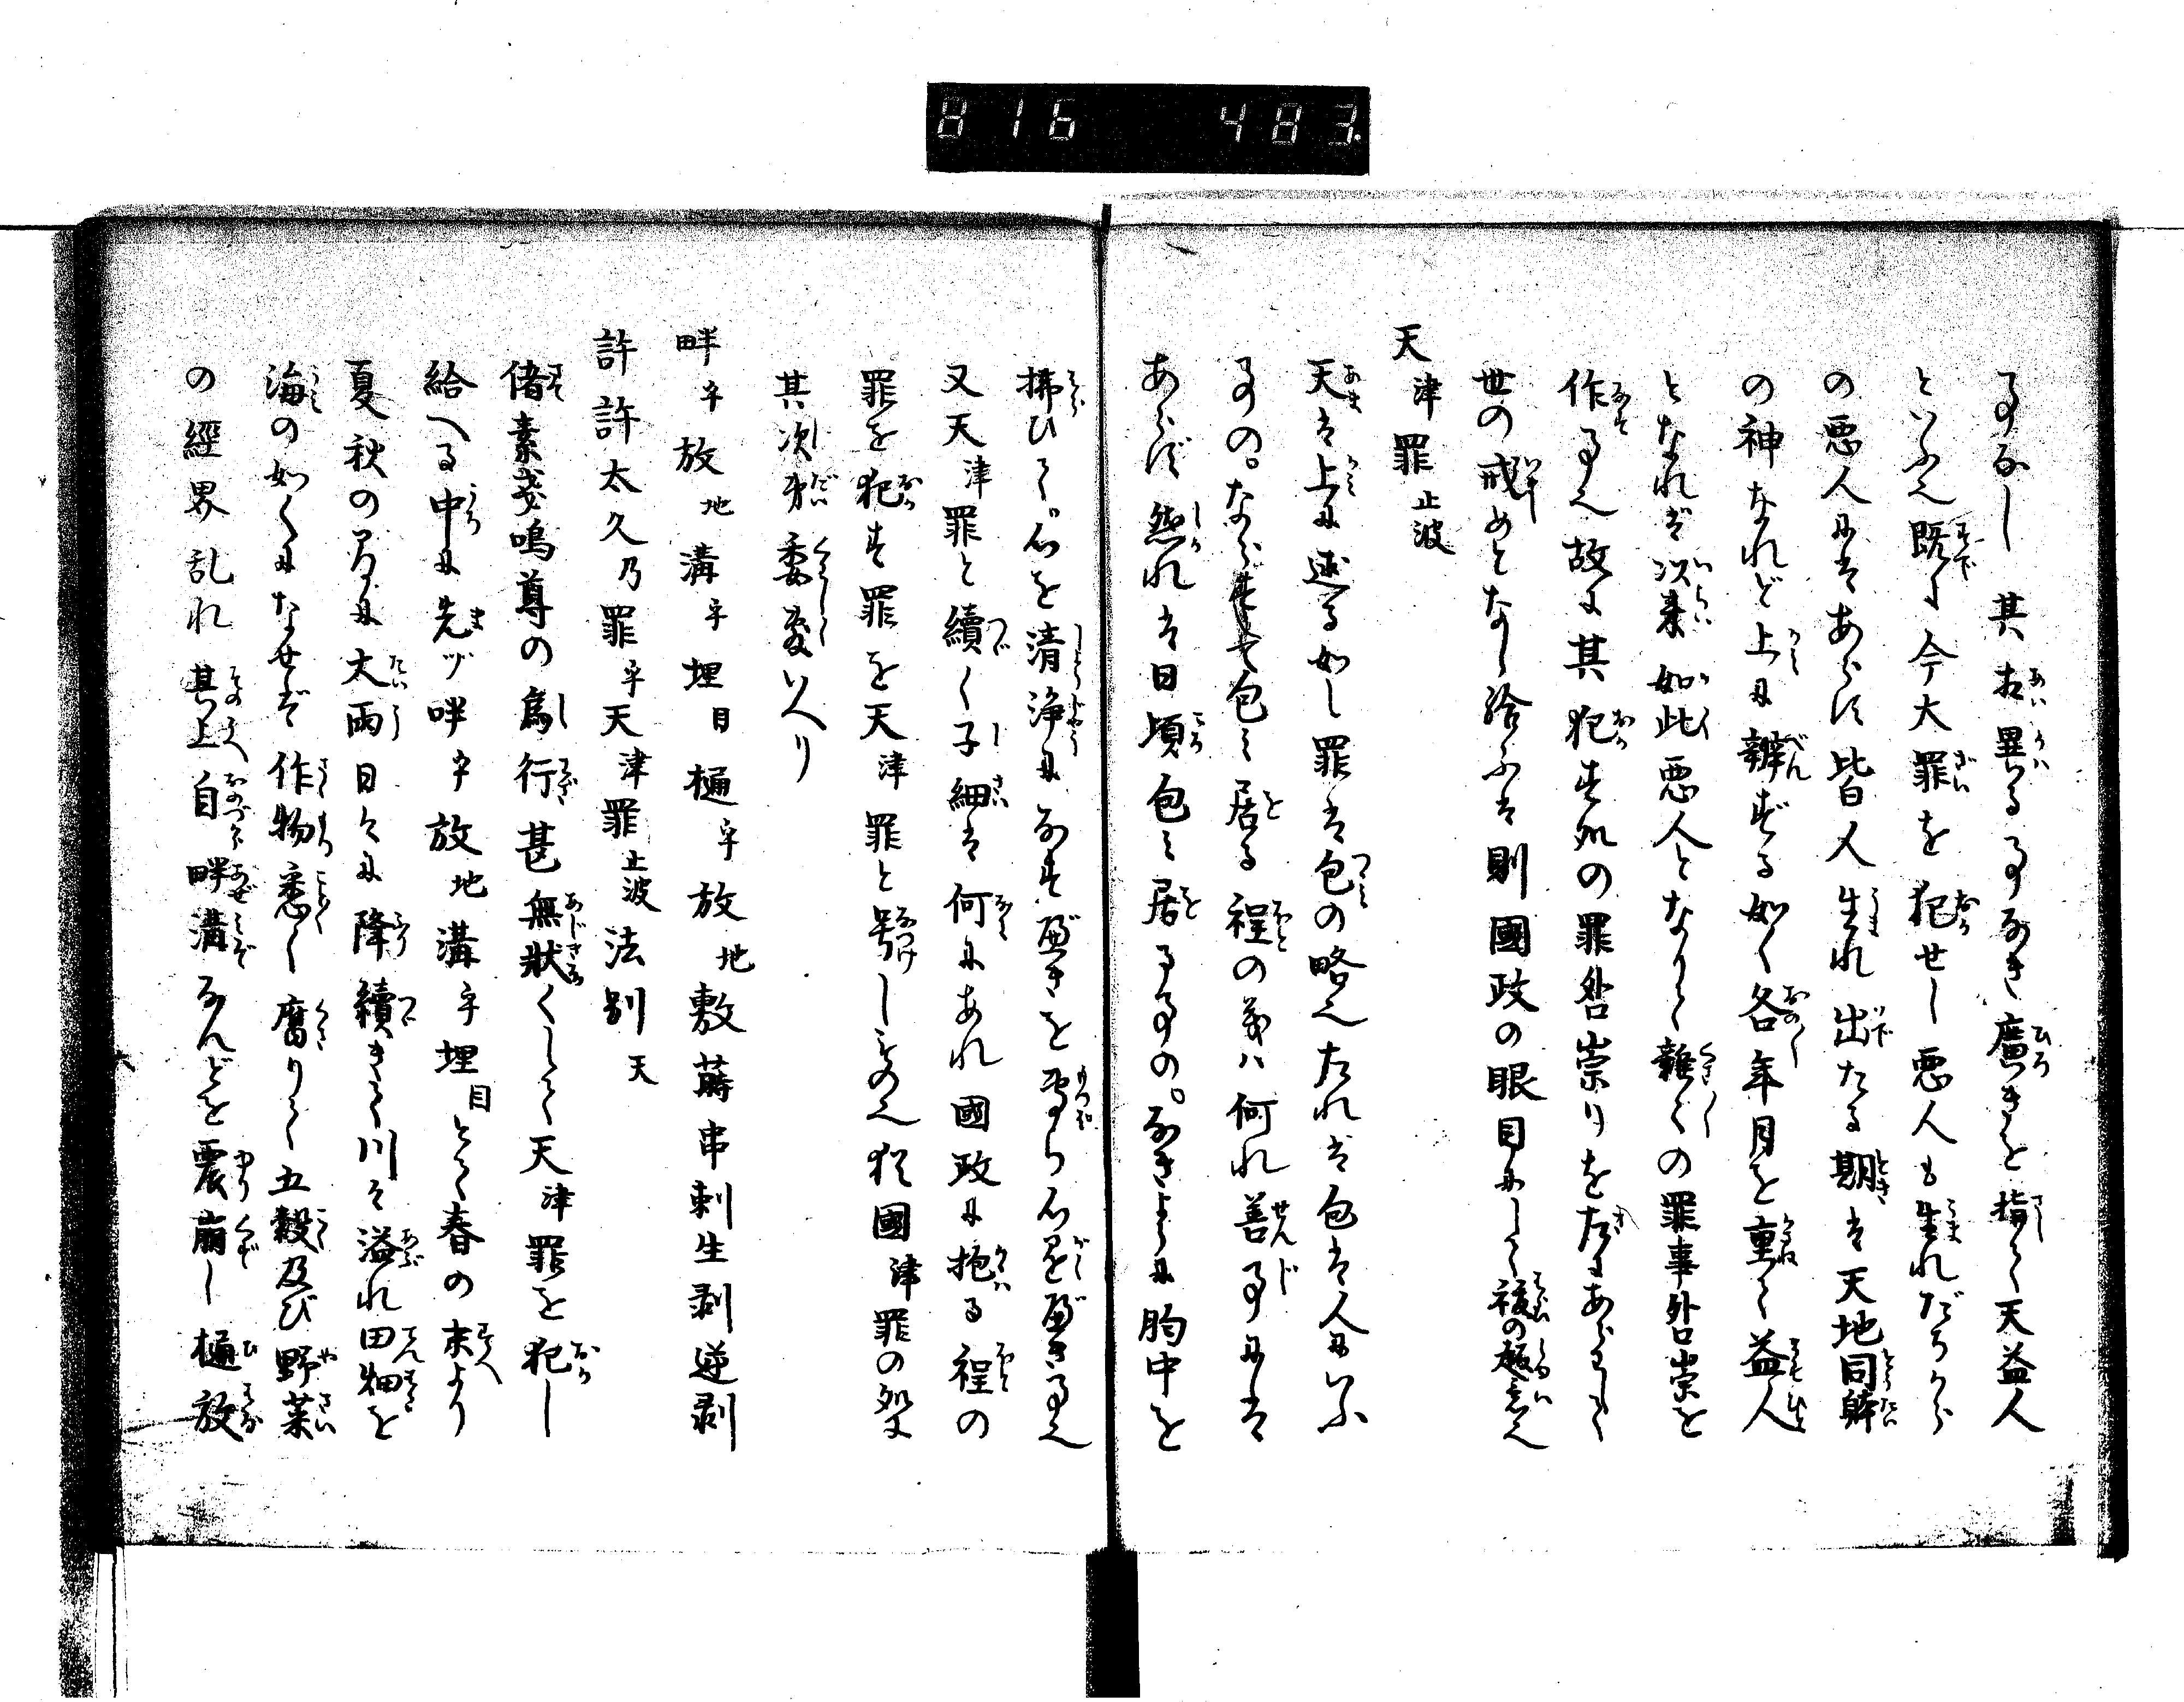 816 483
事なし其相異る事なき廣きを指して天益人
といふ也既に今大罪を犯せし悪人も生れだちから
の悪人にはあらず皆人生れ出たる期は天地同躰
の神なれど上に辨ずる如く各年月を重て益人
となれば以来如此悪人となりて雑々の罪事咎崇を
作る也故に其犯す処の罪咎崇りを左にあらわして
世の戒めとなし給ふは則國政の眼目にして祓の趣意也
天津罪止波
天は上に述る如し罪は包の略也たれは包は人にいふ
ものならず包み居る程の義は何れ善事には
あらず然れは日頃包み居る事のなきように胸中を
拂ひて心を清浄になすべきを専ら心を置べき事也
又天津罪と續く子細は何にあれ國政に抱る程の
罪を犯す罪を天津罪と号けしもの也猶國津罪の処
其次第委敷いへり
畔乎放地溝乎埋目樋乎放地敷蒔串刺生剥逆剥
許許太久乃罪乎天津罪止波法別天
偖素戔嗚尊の為行甚無状くして天津罪を犯し
給へる中に先ヅ畔乎放地溝乎埋目とて春の末より
夏秋の為に大雨日々に降續きて川は溢れ田畑を
海の如くになせば作物悉く腐りて五穀及び野菜
の經界乱れ其上自畔溝なんどを震崩し樋放